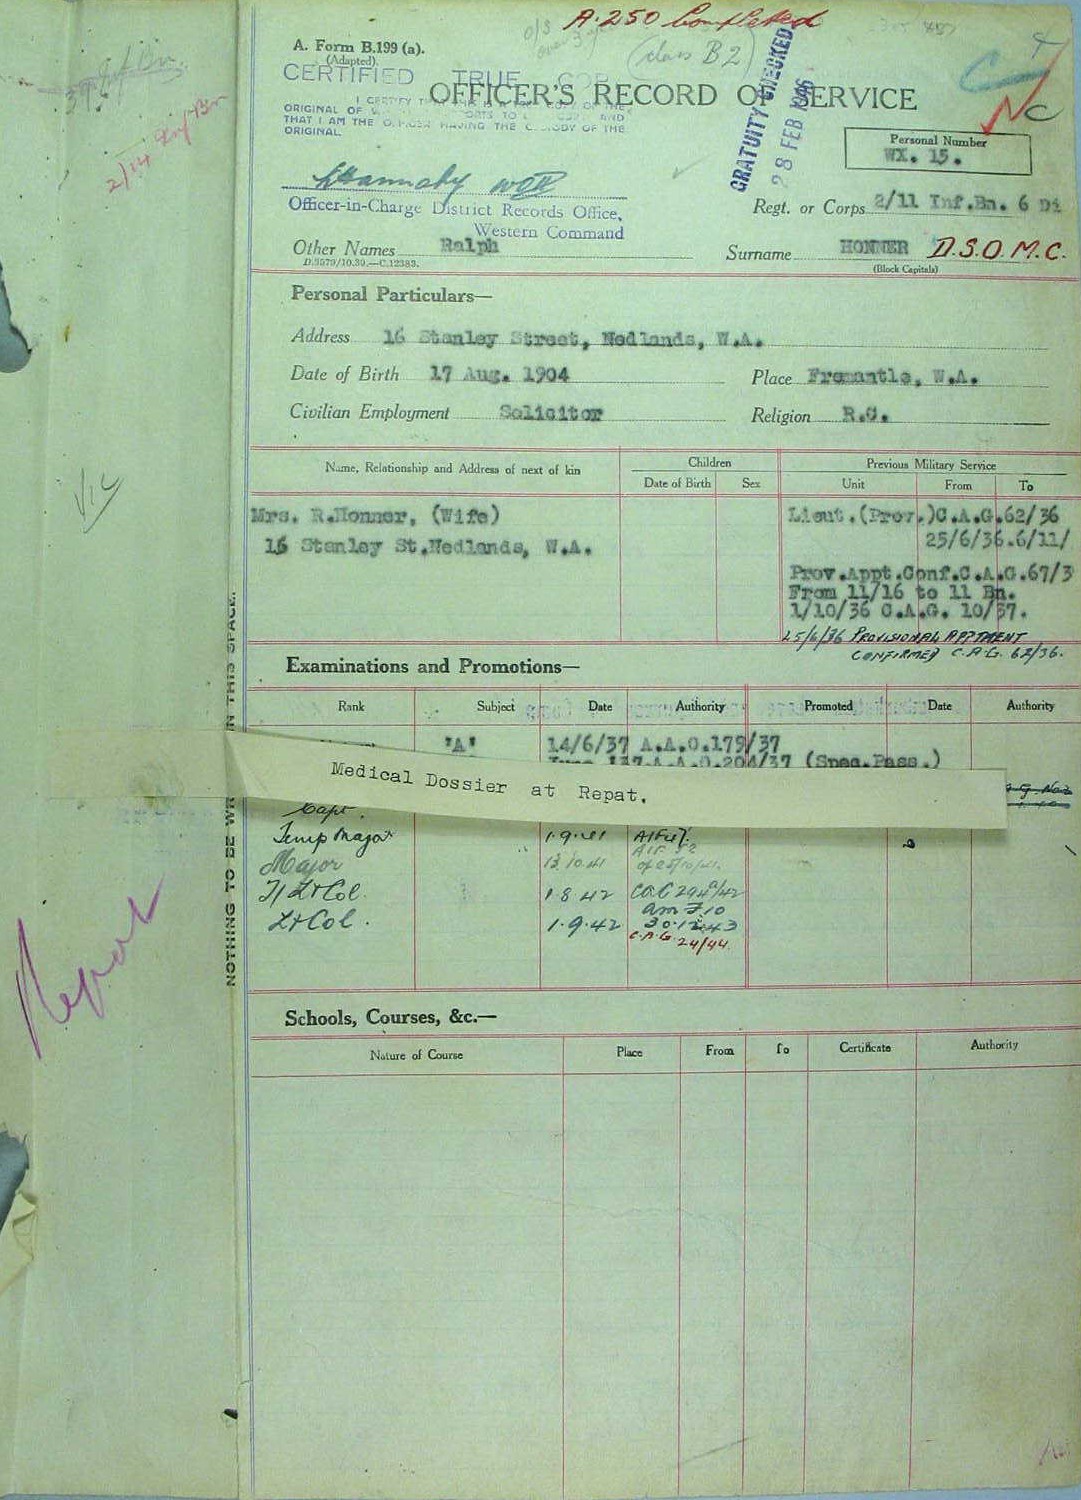 A. 250 Completed
A. Form B.199 (a).
(Adapted).
(class B2)
CERTIFIED TRUE COPY
OFFICER'S RECORD OF SERVICE
I CERTIFY THAT THIS IS A TRUE COPY OF THE
ORIGINAL OF AND
THAT I AM THE OFFICER HAVING THE CUSTODY OF THE
ORIGINAL.
GRATUITY CHECKED
28 FEB 1946
NC
Personal Number
WX. 15.
Officer-in-Charge District Records Office,
Western Command
Regt. or Corps 2/11 Inf.Bn. 6 Di
Other Names Ralph
D.3579/10.39.—C.12383.
Surname HONNER D.S.O. M.C.
(Block Capitals)
39 Inf Bn.
2/14 Inf Bn
Personal Particulars—
Address 16 Stanley Street, Nedlands, W.A.
Date of Birth 17 Aug. 1904 Place Fremantle, W.A.
Civilian Employment Solicitor Religion R.C.
Name, Relationship and Address of next of kin Children Previous Military Service
Date of Birth Sex Unit From To
Vic
Mrs. R.Honner, (Wife) Lieut.(Prov.)C.A.G.62/36
16 Stanley St.Nedlands, W.A. 25/6/36.6/11/
Prov.Appt.Conf.C.A.G.67/3
From 11/16 to 11 Bn.
1/10/36 C.A.G. 10/37.
25/6/36 PROVISIONAL APPTMENT
CONFIRMED C.A.G. 62/36.
Examinations and Promotions—
Rank Subject Date Authority Promoted Date Authority
"A" 14/6/37 A.A.O.179/37
A.A.O.204/37 (Spec.Pass.)
Medical Dossier at Repat.
Capt.
Temp Major 1.9.41
Major 13.10.41
T/ Lt Col. 1.8.42 CAG 294/42
Lt Col. 1.9.42 30.12.43
C.A.G. 24/44.
NOTHING TO BE WR IN THIS SPACE.
Repat
Schools, Courses, &c.—
Nature of Course Place From To Certificate Authority